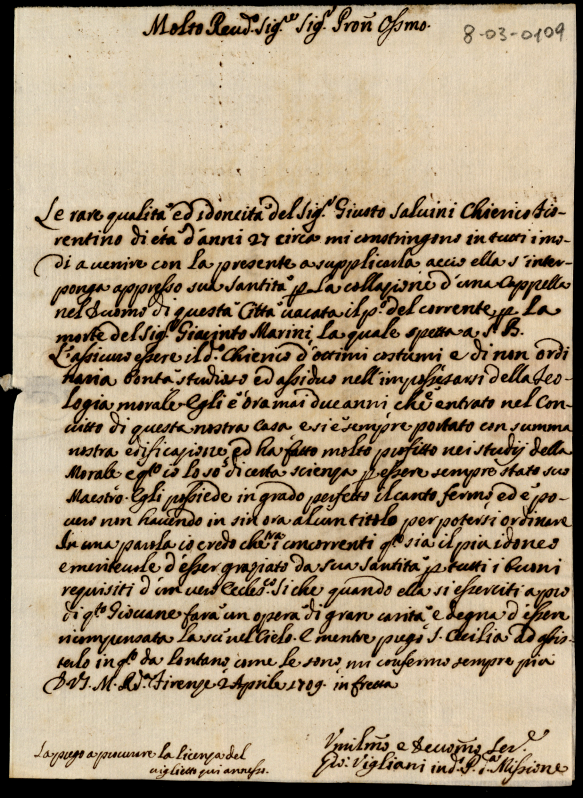 Molto Reud.° Sig.r Sig.r Pron Ossmo.
8-03-0109
Le rare qualita' ed idoneita' del Sig.r Giusto Salvini Chierico Fio-
rentino di eta' d'anni 27 circa mi constringono in tutti i mo-
di a venire con la presente a supplicarla accio ella s'inter-
ponga appresso sua Santita' p la collazione d'una Cappella
nel Duomo di questa Citta' vacata il p.° del corrente p la
morte del Sig.r Giacinto Marini la quale spetta a S. B.
L'assicuro essere il d.° Chierico d'ottimi costumi e di non ordi
naria bonta' studioso ed assiduo nell'impossesarsi della Teo-
logia morale. Egli e' ora mai due anni che e' entrato nel Con-
vitto di questa nostra Casa e si e' sempre portato con summa
nostra edificazione, ed ha fatto molto profitto nei studij della
Morale e q.to io lo so' di certa scienza p essere sempre stato suo
Maestro. Egli possiede in grado perfetto il canto fermo ed e' po-
vero non havendo in sin ora alcun titolo per potersi ordinare
In una parola io credo che tra i concorrenti q.to sia il piu idoneo
e meritevole d'esser graziato da sua Santita' p tutti i buoni
requisiti d'un vero Eccles.co Si che quando ella si eserciti a pro
di q.to Giovane fara' un opera di gran carita' e degna d'essere
ricompensata la su' nel Cielo. E mentre prego S. Cecilia ad assis-
terlo in q.to da lontano come le sono, mi confermo sempre piu
D V.S. M. R.da Firenze 2 Aprile 1709. in fretta
La prego a procurare la licenza del
viglietto qui annesso.
Vmilmo e Deuomo Ser.e
Gio: Vigliani ind. P. d.a Missione